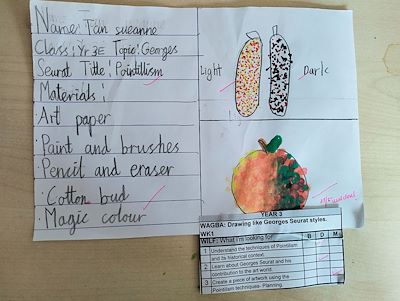 Name: Tan sueanne
Class: Yr 3E Topic: Georges
Seurat Title: Pointillism
Materials:
Art paper
· Paint and brushes
· Pencil and eraser
· Cotton bud
· Magic colour
Light
Dark
YEAR 3
WAGBA: Drawing like Georges Seurat styles.
WK1
WILF: What I'm looking for B D M
1 Understand the techniques of Pointillism
and its historical context.
2 Learn about Georges Seurat and his
contribution to the art world.
3 Create a piece of artwork using the
Pointillism techniques- Planning.